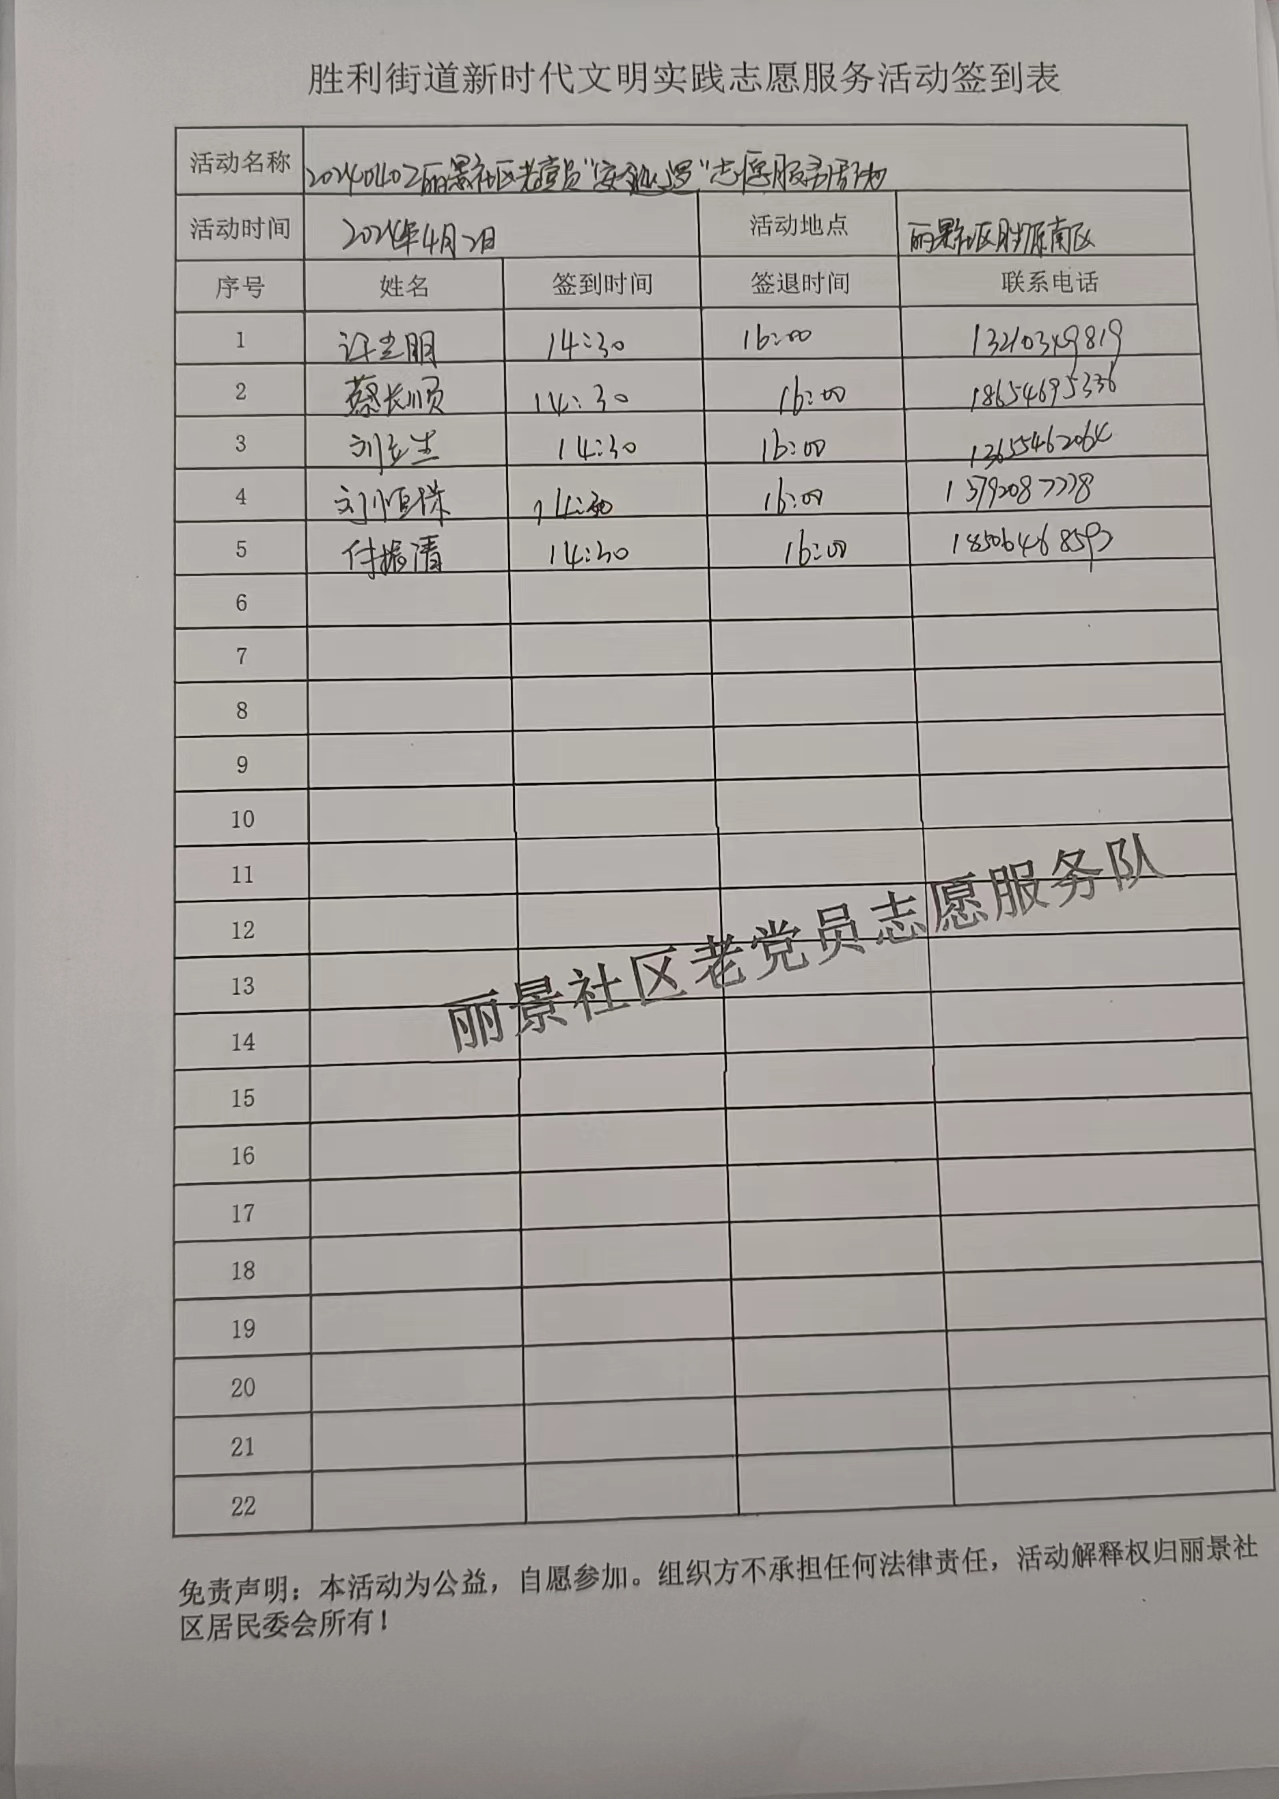 胜利街道新时代文明实践志愿服务活动签到表
活动名称 20240402丽景社区老党员“安全巡逻”志愿服务活动
活动时间 2024年4月2日 活动地点 丽景社区胜原南区
序号 姓名 签到时间 签退时间 联系电话
1 许立朋 14:30 16:00 13210349819
2 蔡长顺 14:30 16:00 18654695336
3 刘立生 14:30 16:00 13655462064
4 刘恒保 14:30 16:00
5 付振清 14:30 16:00 18506468593
6
7
8
9
10
11
12
13
14
15
16
17
18
19
20
21
22
丽景社区老党员志愿服务队
免责声明：本活动为公益，自愿参加。组织方不承担任何法律责任，活动解释权归丽景社
区居民委会所有！